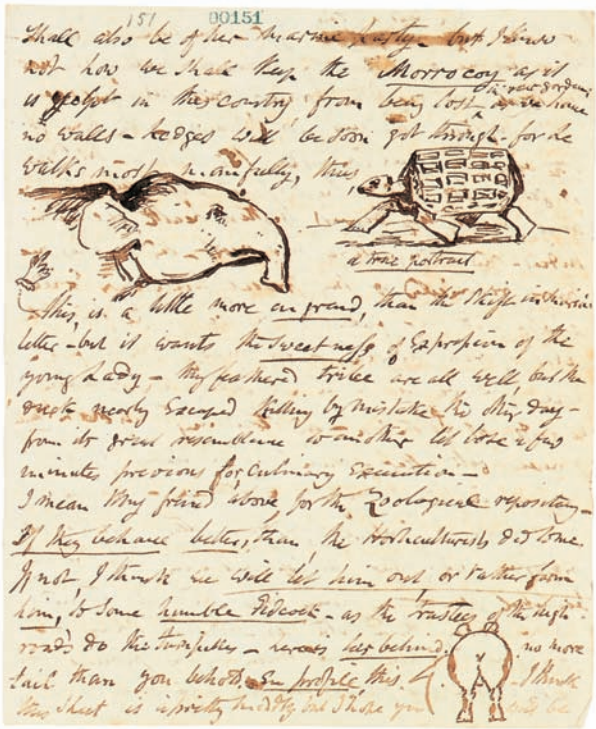 151 00151
shall also be of her marine party - but I know
not how we shall keep the Morrocoy as it
is yclept in this country, from being lost in our gardens, as we have
no walls - hedges will be soon got through - for he
walks most manfully, thus
a true portrait
this is a little more en grand, than the Skiff in
letter - but it wants the sweetness of Expression of the
young Lady - My feathered tribe are all well, but the
duck nearly Escaped killing by mistake the other day -
from its great resemblance to another let loose a few
minutes previous for Culinary Execution -
I mean My friend above for the Zoological repository -
If they behave better, than the Horticulturists did to me.
If not, I think we will let him out, or rather farm
him, to some humble Pidcock - as the trustees of the high
roads do the turnpikes - here is his behind. no more
tail than you behold. En profile, this. I think
this sheet is a pretty but I hope you will be